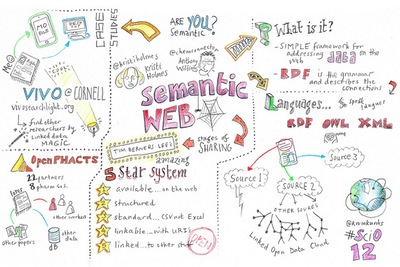 CASE
STUDIES
MESH
VIVO @ CORNELL
vivosearchlight.org
find other
researchers by
linked data
MAGIC
OpenPHACTS
22 partners
8 pharma co.s
other papers
other
data
ARE YOU?
Semantic
@kristiholmes
Kristi
Holmes
Anthony
semantic
WEB
TIM BERNERS LEE'S
amazing
stages of
SHARING
5 Star system
available... on the web
structured
standard... CSV not Excel
linkable... with URIs
linked... to other
OPEN
What is it?
- SIMPLE framework for
addressing data on the
web
- RDF is the grammar
and describes the
connections
Languages...
RDF OWL XML
Source 1
SOURCE 2
Source 3
OTHER SOURCE
Linked Open Data Cloud
#SCIO
12